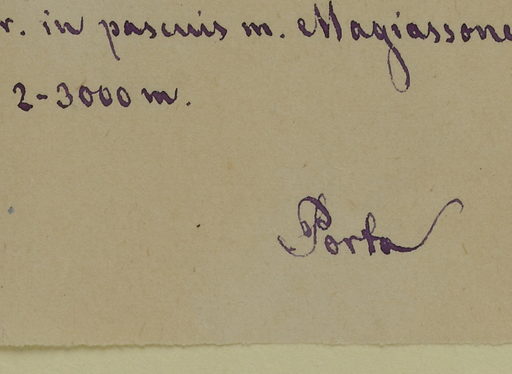 r. in pascuis m. Magiassone
2-3000 m.
Porta